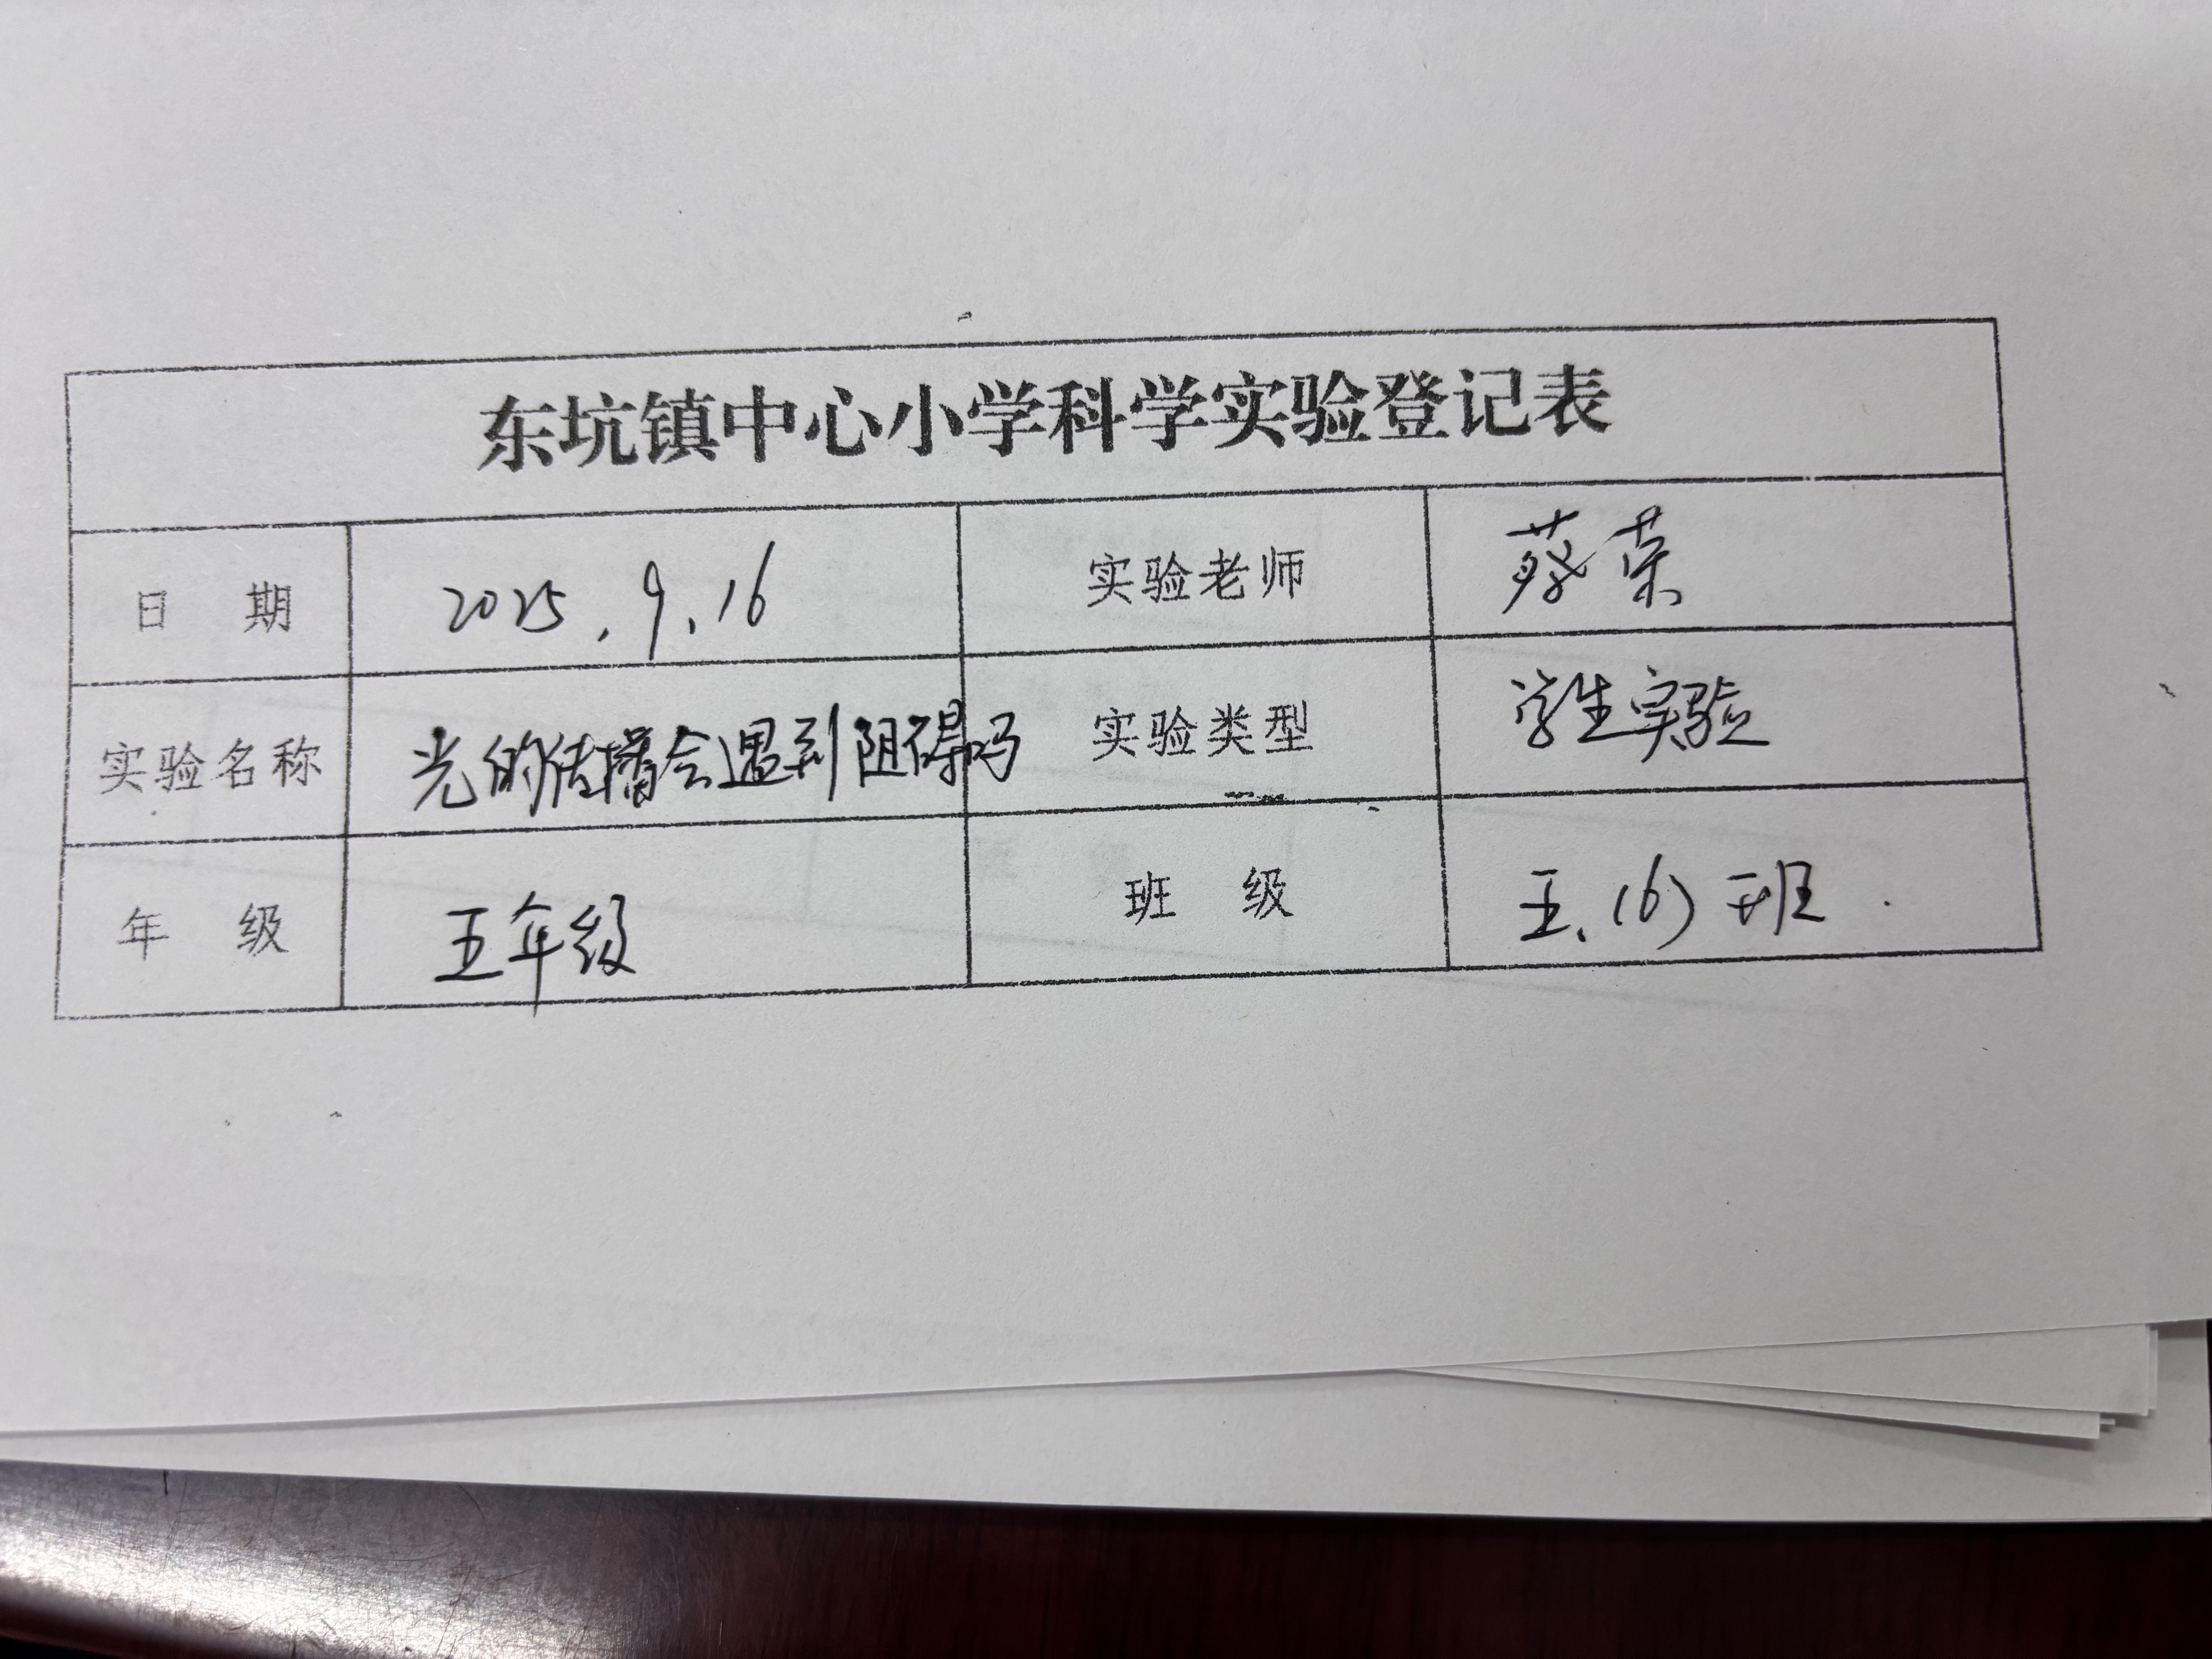 东坑镇中心小学科学实验登记表
日 期 2025.9.16 实验老师 蔡荣
实验名称 光的传播会遇到阻碍吗 实验类型 学生实验
年 级 五年级 班 级 五.(6)班.